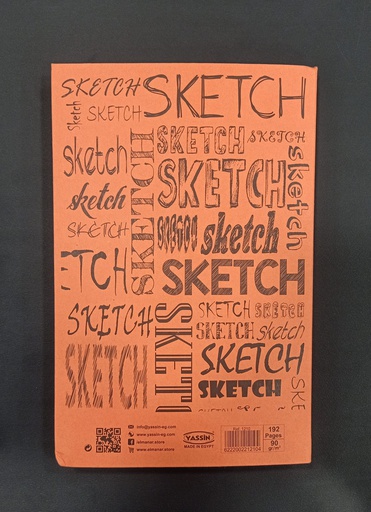 SKETCH
SKETCH
Sketch
SKETCH
SKETCH
SKETCH
sketch
SKETCH
SKETCH
sketch
sketch
SKETCH
SKETCH
sketch
ETCH
SKETCH
SKETCH
SKETCH
SKETCH
SKETCH
SKETCH
sketch
SKETCH
SKETCH
SKETCH
SKET
SKE
info@yassin-eg.com
www.yassin-eg.com
elmanar.store
www.elmanar.store
YASSIN
MADE IN EGYPT
9222900212104
192
Pages
90
g/m²